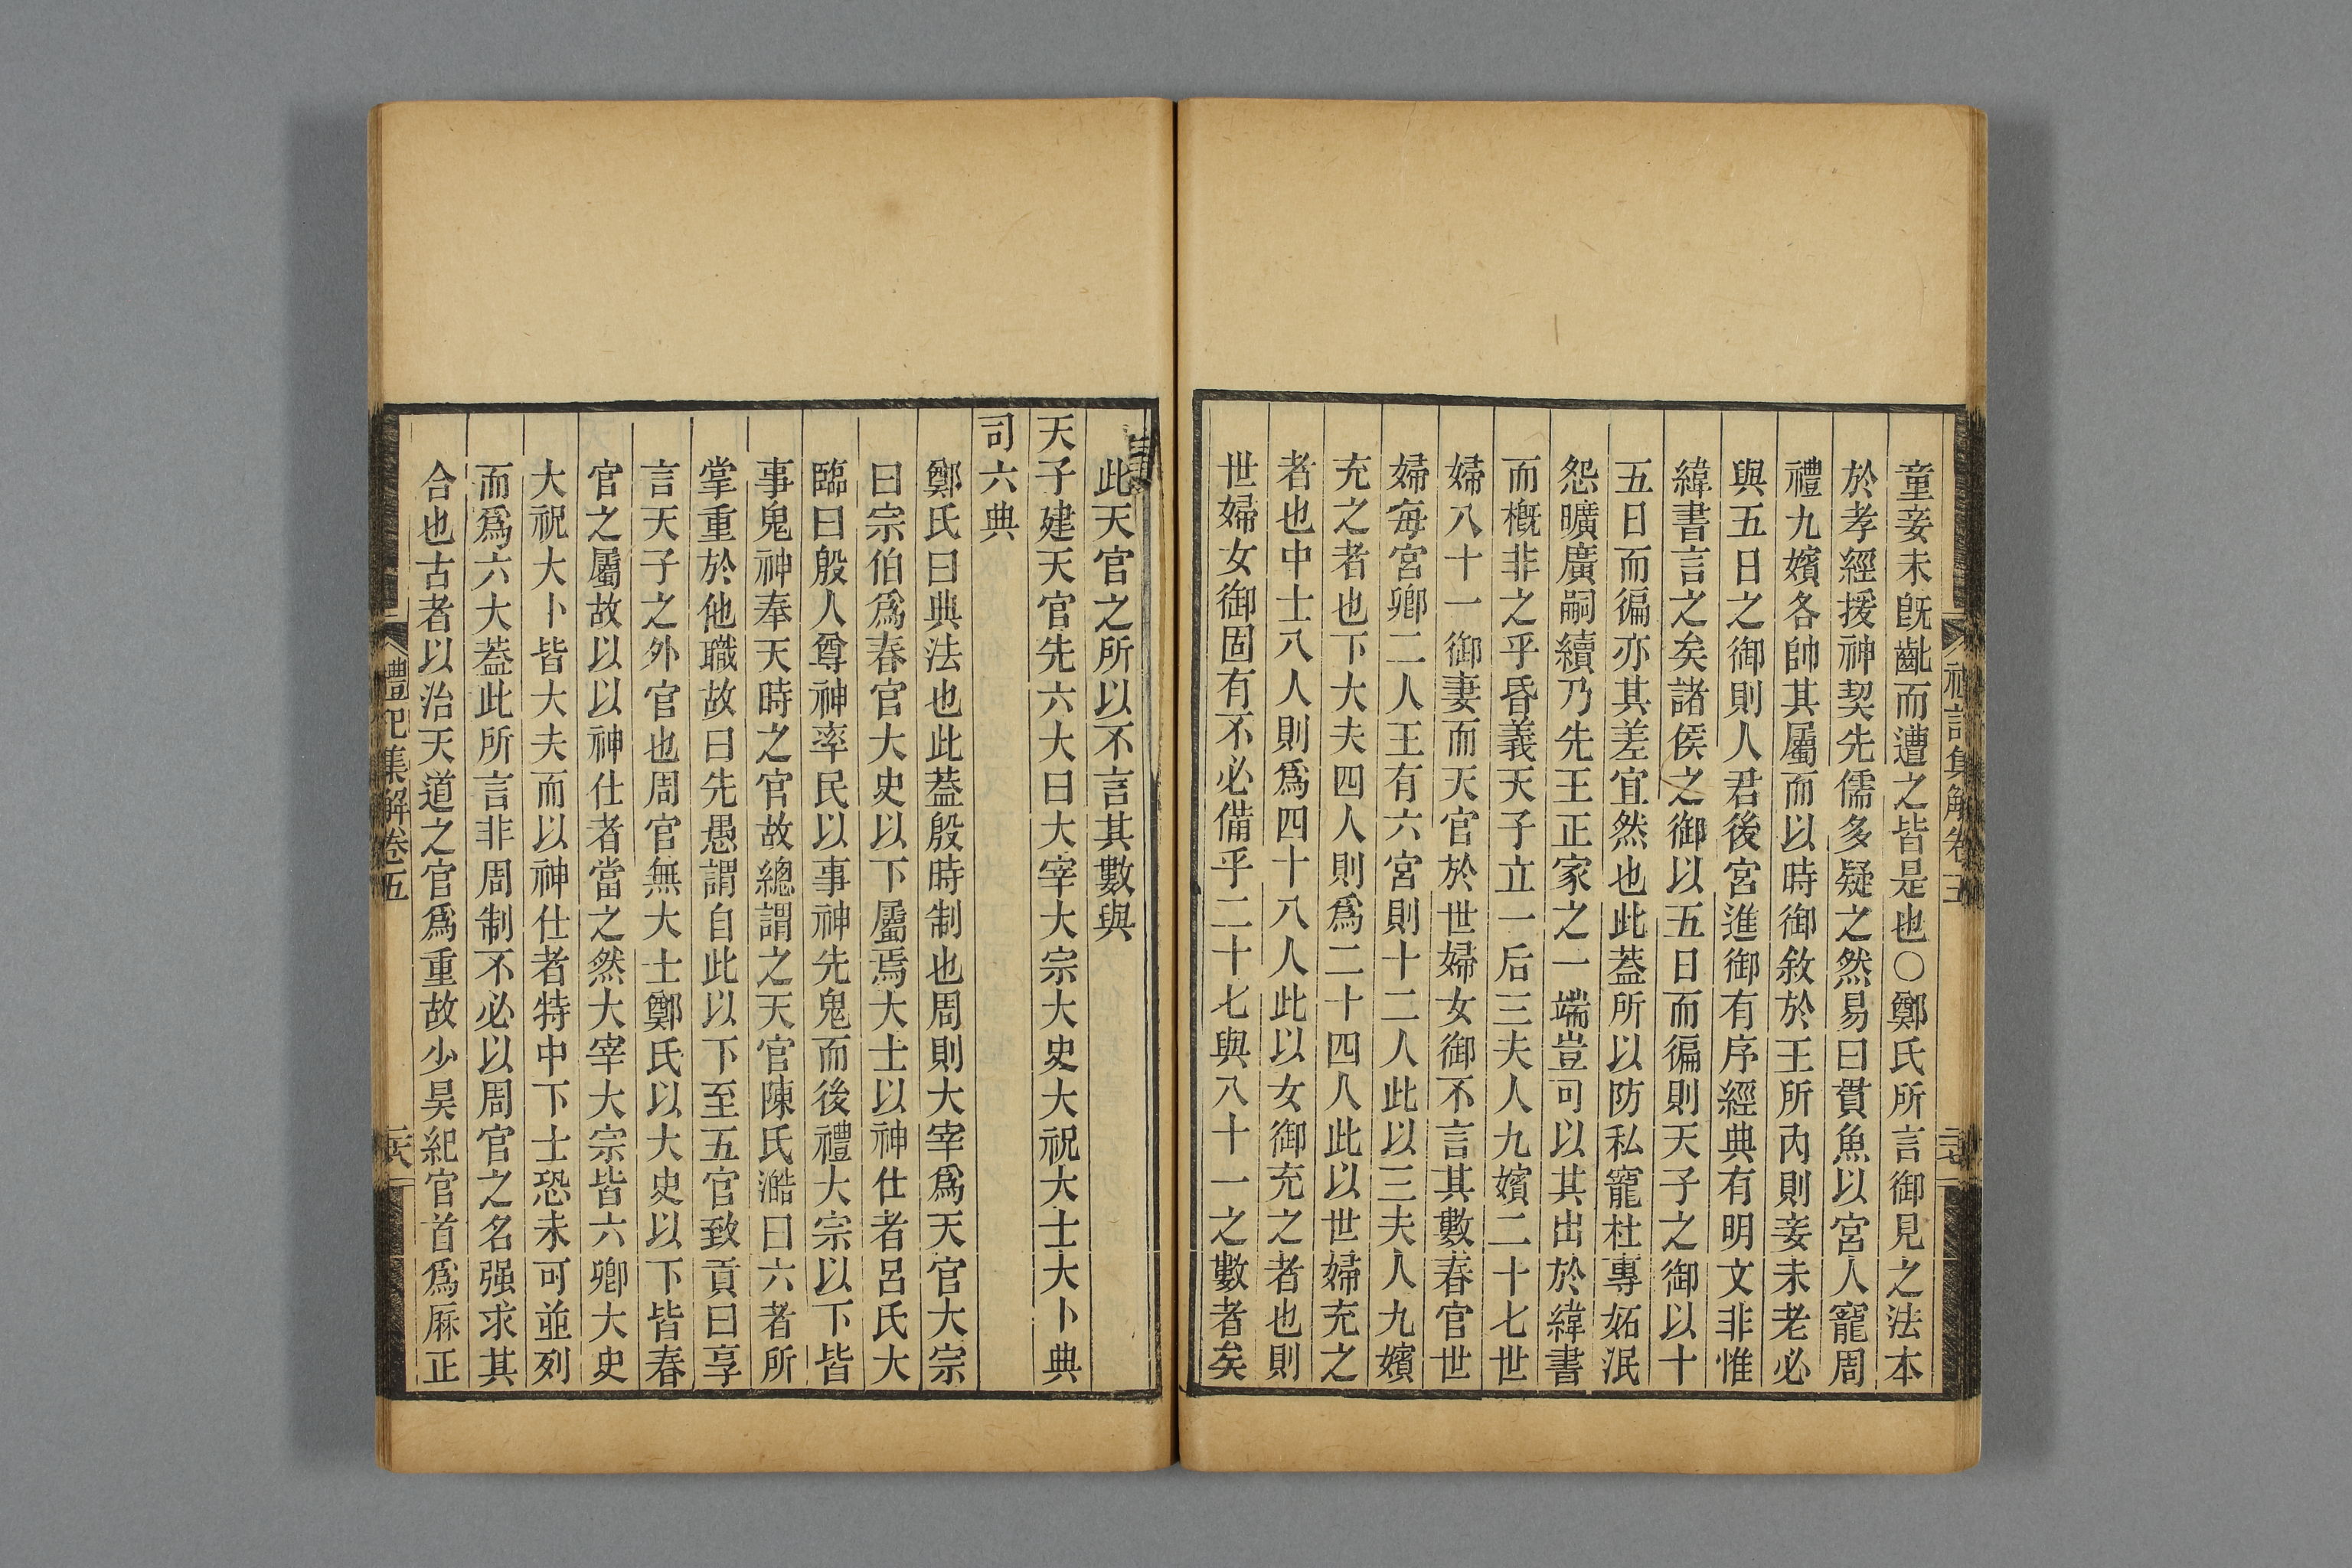 禮記集解卷五
童妾未旣齔而遭之皆是也○鄭氏所言御見之法本
於孝經援神契先儒多疑之然易曰貫魚以宮人寵周
禮九嬪各帥其屬而以時御敘於王所內則妾未老必
與五日之御則人君後宮進御有序經典有明文非惟
緯書言之矣諸侯之御以五日而徧則天子之御以十
五日而徧亦其差宜然也此蓋所以防私寵杜專妬泯
怨曠廣嗣續乃先王正家之一端豈可以其出於緯書
而槪非之乎昏義天子立一后三夫人九嬪二十七世
婦八十一御妻而天官於世婦女御不言其數春官世
婦每宮卿二人王有六宮則十二人此以三夫人九嬪
充之者也下大夫四人則爲二十四人此以世婦充之
者也中士八人則爲四十八人此以女御充之者也則
世婦女御固有不必備乎二十七與八十一之數者矣
此天官之所以不言其數與
天子建天官先六大曰大宰大宗大史大祝大士大卜典
司六典
鄭氏曰典法也此蓋殷時制也周則大宰爲天官大宗
曰宗伯爲春官大史以下屬焉大士以神仕者呂氏大
臨曰殷人尊神率民以事神先鬼而後禮大宗以下皆
事鬼神奉天時之官故總謂之天官陳氏澔曰六者所
掌重於他職故曰先愚謂自此以下至五官致貢曰享
言天子之外官也周官無大士鄭氏以大史以下皆春
官之屬故以以神仕者當之然大宰大宗皆六卿大史
大祝大卜皆大夫而以神仕者特中下士恐未可並列
而爲六大蓋此所言非周制不必以周官之名强求其
合也古者以治天道之官爲重故少昊紀官首爲厤正
禮記集解卷五